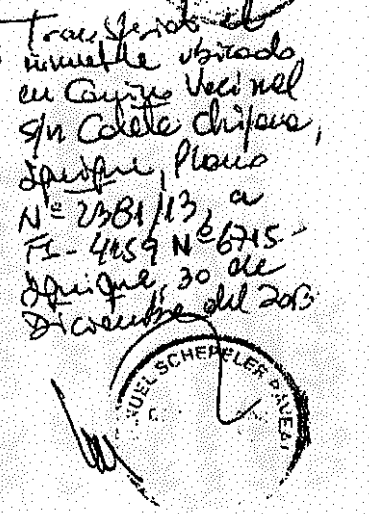 Transferido el
inmueble ubicado
en Camino Vecinal
S/N Caleta Chipana,
Iquique, Plano
Nº 2381/13, a
Fs- 4459 Nº 6715-
Iquique, 30 de
Diciembre del 2013
NUEL SCHEPELER RAVEAU